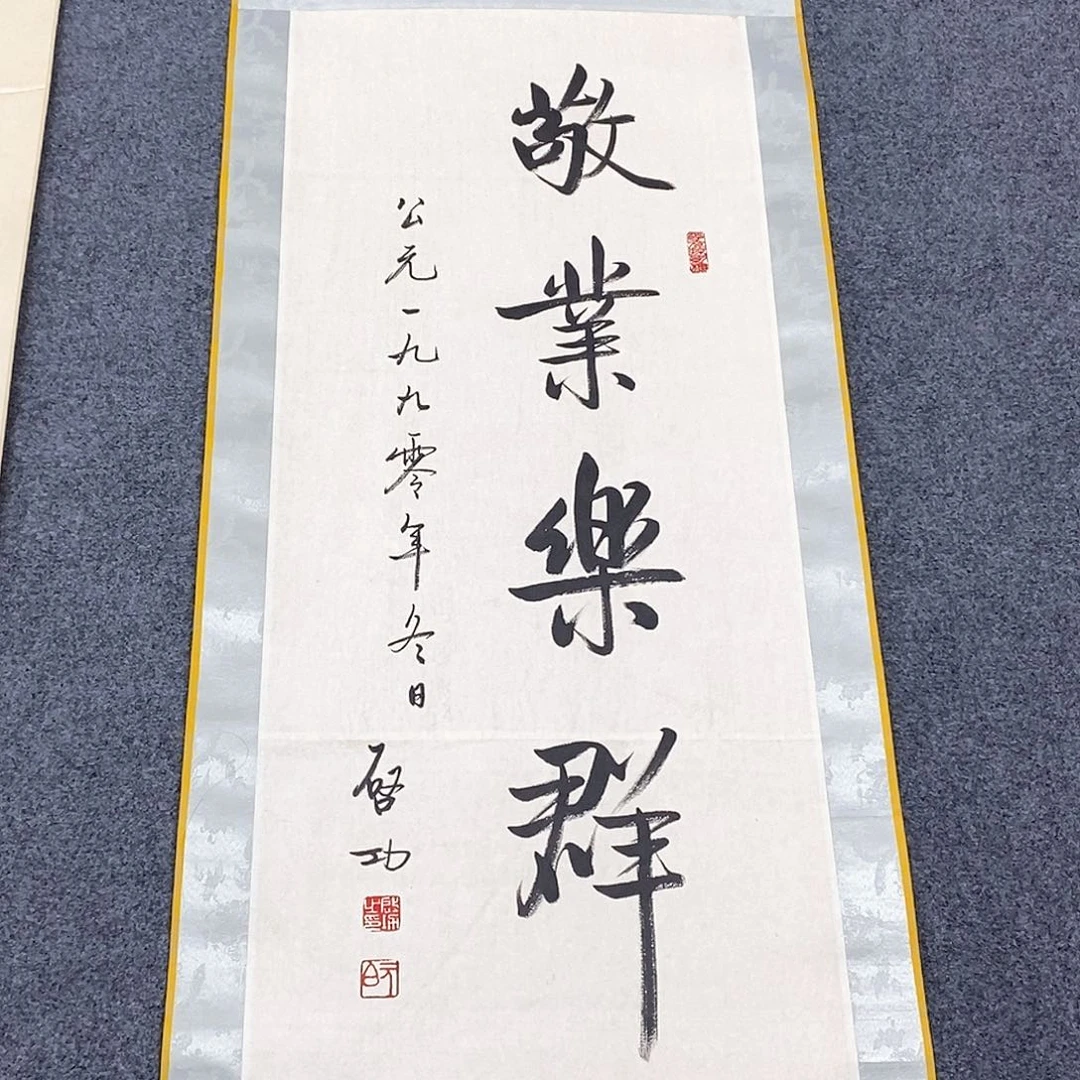 敬業樂群
公元一九九零年冬日
啓功